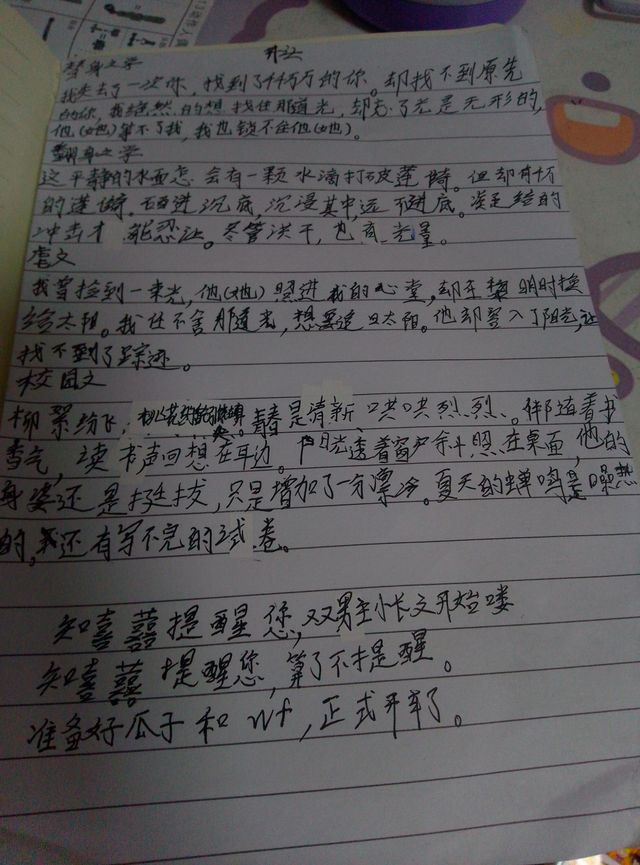 开头
替身文学
我失去了一次你，找到了千千万万的你。却找不到原先
的你，我绝然的想找住那道光，却忘了光是无形的，
他(她)算不了我，我也锁不住他(她)。
翻身文学
这平静的水面怎会有一颗水滴打破涟漪。但却有千万
的涟漪。石进沉底，沉浸其中，远不进底。满足给的
冲击才能忍让。尽管决干，也有光晕。
虐文
我曾捡到一束光，他(她)照进我的心堂，却在黎明时换
给太阳。我仕不舍那道光，想要追日太阳。他却署入了阳光，让
找不到了踪迹。
校园文
柳絮纷飞，青春是清新、哄哄烈烈。伴随着书
香气，读书声回想在耳边。阳光透着窗户余斗照在桌面，他的
身姿还是挺拔，只是增加了一分漂冷。夏天的蝉鸣是噪热
的，还有写不完的试卷。
知喜囍提醒您，双男主小长文开始喽
知喜囍提醒您，算了不提醒。
准备好瓜子和 wf，正式开车了。